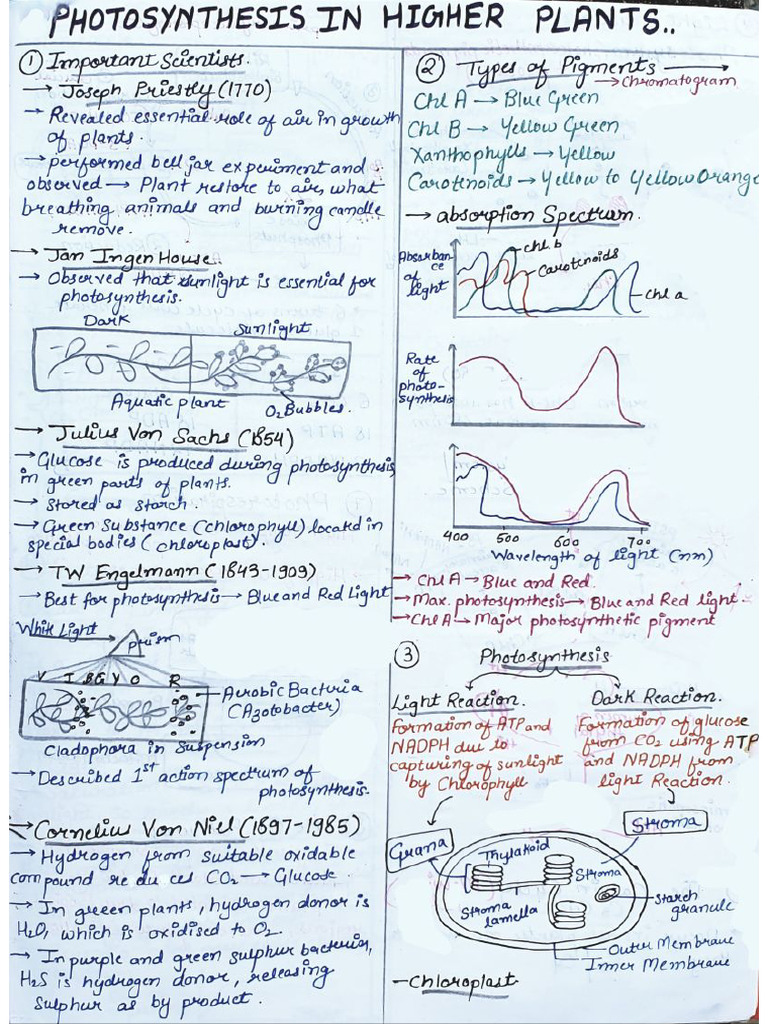 PHOTOSYNTHESIS IN HIGHER PLANTS..
① Important Scientists.
→ Joseph Priestly (1770)
→ Revealed essential role of air in growth
of plants.
→ performed bell jar experiment and
observed → Plant restore to air, what
breathing animals and burning candle
remove.
→ Jan Ingen House
→ Observed that sunlight is essential for
photosynthesis.
Dark Sunlight
Aquatic plant O₂ Bubbles.
→ Julius Von Sachs (1854)
→ Glucose is produced during photosynthesis
in green parts of plants.
→ Stored as starch.
→ Green Substance (chlorophyll) located in
special bodies (chloroplast).
→ TW Engelmann (1843-1909)
→ Best for photosynthesis → Blue and Red Light
White Light → Prism
V I B G Y O R
→ Aerobic Bacteria
(Azotobacter)
Cladophora in Suspension
→ Described 1st action spectrum of
photosynthesis.
→ Cornelius Von Niel (1897-1985)
→ Hydrogen from suitable oxidable
compound reduces CO₂ → Glucose.
→ In greeen plants, hydrogen donor is
H₂O, which is oxidised to O₂.
→ In purple and green sulphur bacteria,
H₂S is hydrogen donor, releasing
Sulphur as by product.
② Types of Pigments →
→ Chromatogram
Chl A → Blue Green
Chl B → Yellow Green
Xanthophylls → Yellow
Carotinoids → Yellow to Yellow Orange
→ absorption Spectrum.
Absorbance
of
light
chl. b
Carotinoids
Chl a
Rate
of
photo-
synthesis
400 500 600 700
Wavelength of light (nm)
→ Chl A → Blue and Red.
→ Max. photosynthesis → Blue and Red light
→ Chl A → Major photosynthetic pigment
③ Photosynthesis
Light Reaction.
Formation of ATP and
NADPH due to
capturing of sunlight
by Chlorophyll
Dark Reaction.
Formation of glucose
from CO₂ using ATP
and NADPH from
light Reaction.
Grana
Stroma
Thylakoid
Stroma
Stroma
lamella
Starch
granule
Outer Membrane
Inner Membrane
- Chloroplast